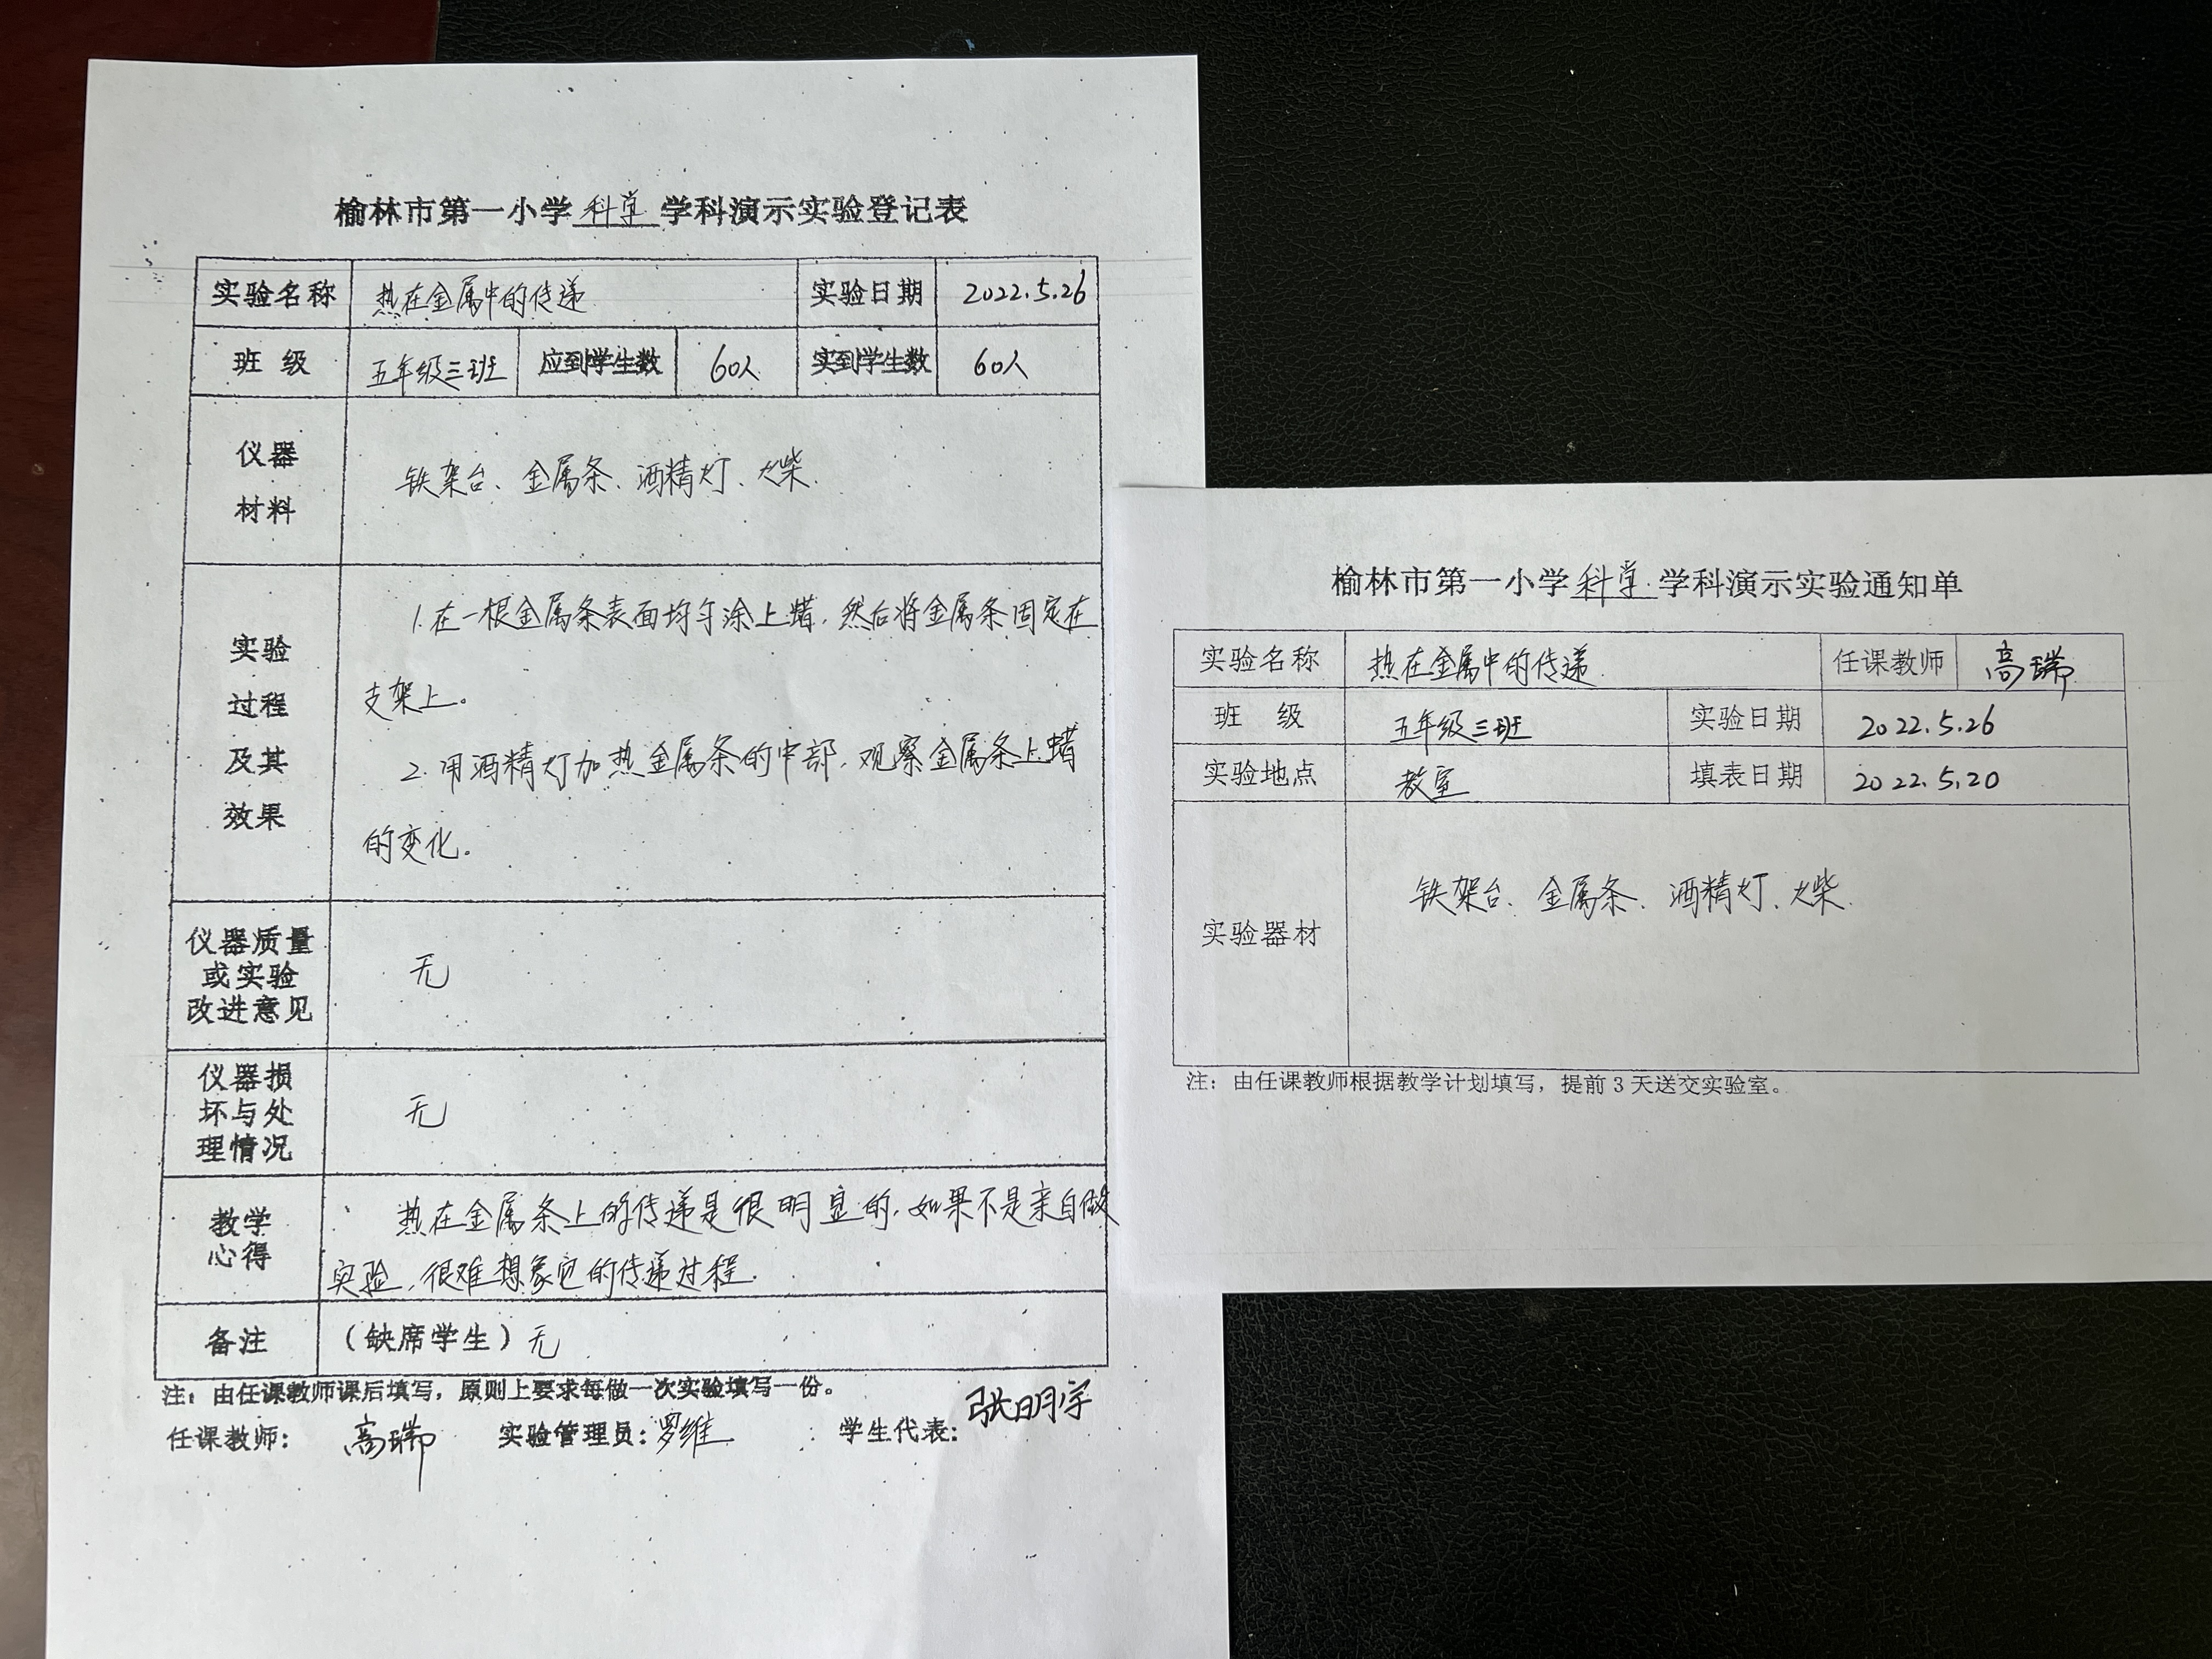 榆林市第一小学 科学 学科演示实验登记表
实验名称 热在金属中的传递 实验日期 2022.5.26
班 级 五年级三班 应到学生数 60人 实到学生数 60人
仪器
材料
铁架台、金属条、酒精灯、火柴.
实验
过程
及其
效果
1.在一根金属条表面均匀涂上蜡,然后将金属条固定在
支架上。
2.用酒精灯加热金属条的中部,观察金属条上蜡
的变化。
仪器质量
或实验
改进意见
无
仪器损
坏与处
理情况
无
教学
心得
热在金属条上的传递是很明显的,如果不是亲自做
实验,很难想象它的传递过程.
备注 (缺席学生)无
注:由任课教师课后填写,原则上要求每做一次实验填写一份。
任课教师: 高瑞 实验管理员:罗维 学生代表:张明宇
榆林市第一小学 科学 学科演示实验通知单
实验名称 热在金属中的传递. 任课教师 高瑞
班 级 五年级三班 实验日期 2022.5.26
实验地点 教室 填表日期 2022.5.20
实验器材 铁架台、金属条、酒精灯、火柴.
注:由任课教师根据教学计划填写,提前 3 天送交实验室。